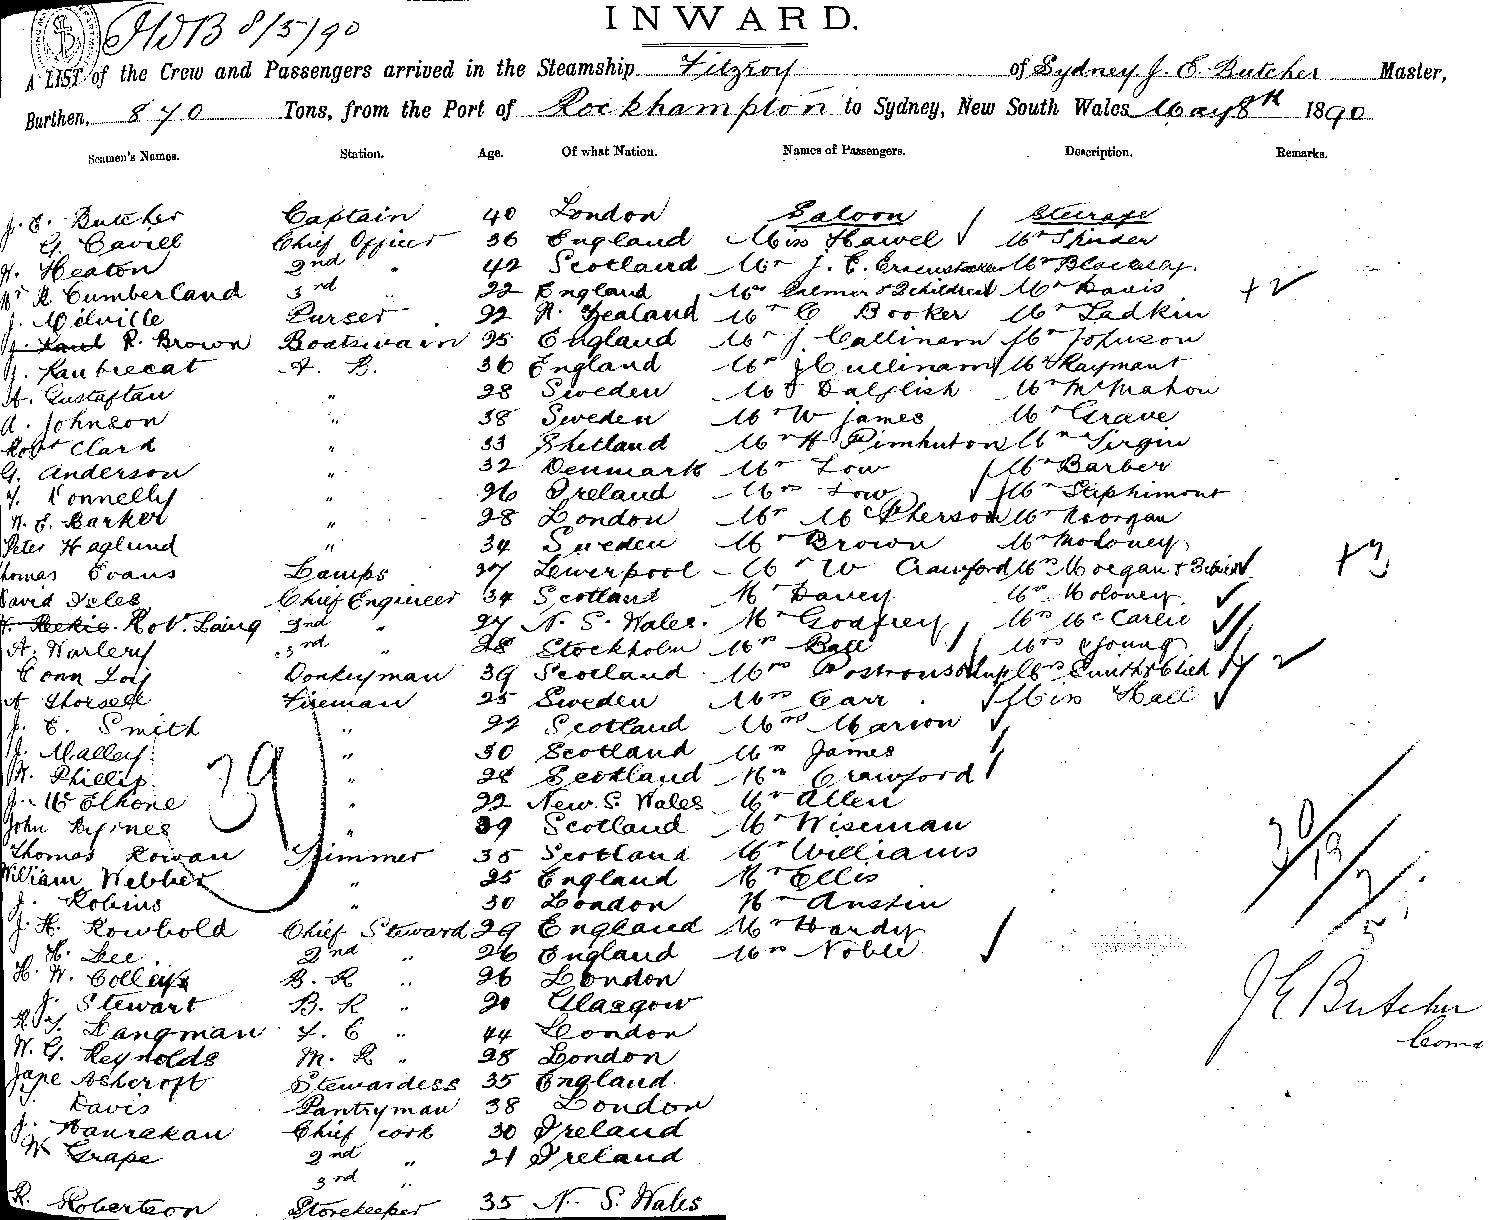 HWB 8/5/90
INWARD.
A LIST of the Crew and Passengers arrived in the Steamship Fitzroy of Sydney J. E. Butcher Master,
Burthen, 870 Tons, from the Port of Rockhampton to Sydney, New South Wales May 8th 1890
Seamen's Names. Station. Age. Of what Nation. Names of Passengers. Description. Remarks.
J. E. Butcher Captain 40 London Saloon Steerage
G. Cavill Chief Officer 36 England Miss Hawel Mr Spinder
W. Heaton 2nd " 42 Scotland Mr J. C.
Mr R Cumberland 3rd " 22 England Mrs Palmer & 2 children Mr Davis +2
J. Melville Purser 22 N. Zealand Mr C Booker Mr Ladkin
R. Brown Boatswain 25 England Mr J. Callinann Mr Johnson
J. Kaubrecat A. B. 36 England Mrs J Cullinann Mr Raymant
A. Gustafsan " 28 Sweden Mr Dalglish Mr McMahon
A. Johnson " 38 Sweden Mr W James Mr Grave
Robt Clark " 33 Shetland Mr H Pemhuton Mrs Sirgin
G. Anderson " 32 Denmark Mr Low Mr Barber
T. Donnelly " 26 Ireland Mrs Low Mr Stephimont
W. E. Barker " 28 London Mr McPherson Mr Moorgan
Peter Haglund " 34 Sweden Mr Brown Mr Moloney
Thomas Evans Lamps 27 Liverpool Mr W Crawford Mrs Morgan & 3 +3
David Chief Engineer 34 Scotland Mr Davey Mrs Moloney
Robt. Laing 2nd " 27 N. S. Wales. Mr Godfrey Mrs McCarlie
A. Warlery 3rd " 28 Stockholm Mrs Ball Mrs Young
Conn Donkeyman 39 Scotland Mrs Smith & Child 2
A Thorsell Fireman 25 Sweden Mrs Carr Miss Hall
J. E. Smith " 22 Scotland Mrs Marion
J. Malley " 30 Scotland Mrs James
W. Phillip " 28 Scotland Mrs Crawford
39
J. McElhone " 22 New. S. Wales Mr Allen
John Byrnes " 39 Scotland Mr Wiseman
Thomas Rowan Trimmer 35 Scotland Mr Williams
William Webber " 25 England Mr Ellis
J. Robins " 30 London Mr Austin
J. H. Rowbold Chief Steward 29 England Mr Hardy
H. Lee 2nd " 26 England Mrs Noble
H. W. Colleys B. R " 26 London
J. Stewart B. R " 20 Glasgow
Langman F. C " 44 London
W. G. Reynolds M. R " 28 London
Jape Ashcroft Stewardess 35 England
Davis Pantryman 38 London
J. Hanrakan Chief cook 30 Ireland
W Grape 2nd " 21 Ireland
3rd "
R. Robertson Storekeeper 35 N. S. Wales
30/19/2/5
J E Butcher